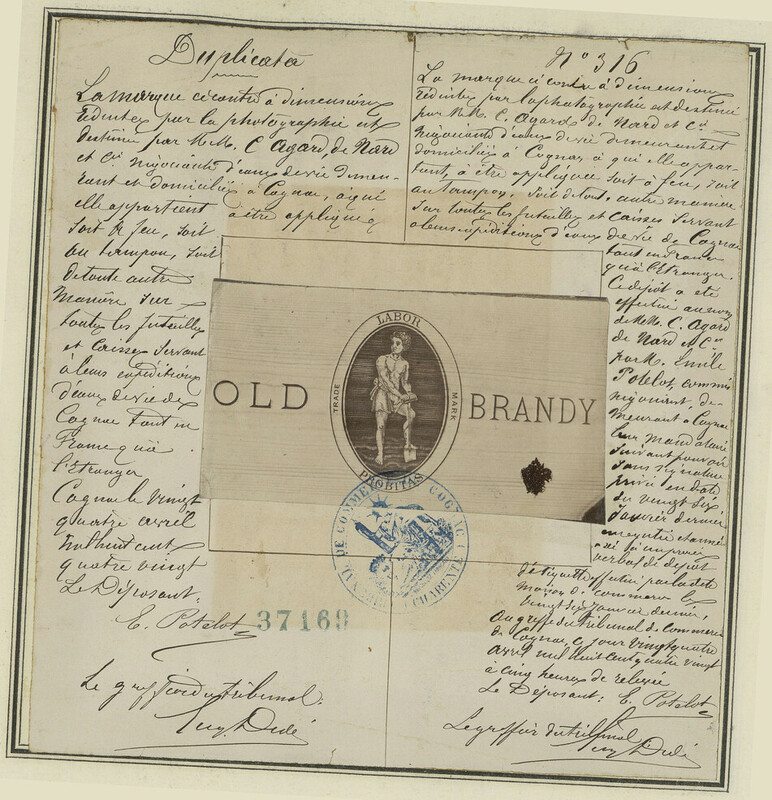 Duplicata
La marque ci contre à dimensions
réduites par la photographie et
destinée par M.M. C. Agard, de Nard
et Cie négociants d'eaux de vie demeu-
rant et domiciliés à Cognac, à qui
elle appartient à être appliquée
soit à feu, soit
au tampon, soit
de toute autre
manière sur
toutes les futailles
et caisses servant
à leurs expéditions
d'eaux de vie de
Cognac tant en
France qu'à
l'Étranger
Cognac le vingt
quatre avril
mil huit cent
quatre vingt
Le Déposant:
E. Potelot
37169
Le greffier du tribunal:
No 316
La marque ci contre à dimensions
réduites par la photographie et destinée
par M.M. C. Agard, de Nard et Cie
négociants d'eaux de vie demeurant et
domiciliés à Cognac, à qui elle appar-
tient, à être appliquée soit à feu, soit
au tampon, soit de toute autre manière
sur toutes les futailles et caisses servant
à leurs expéditions d'eaux de vie de Cognac
tant en France
qu'à l'Étranger.
Ce dépôt a été
effectué au nom
de M.M. C. Agard
de Nard et Cie
par M. Emile
Potelot, commis
négociant, de-
meurant à Cognac
leur mandataire
suivant pouvoir
sous signature
privée en date
du vingt six
Janvier dernier
enregistré et annexé
au procès
verbal de dépôt
d'étiquette effectué par la dite
maison de commerce le
vingt six janvier dernier,
Au greffe du tribunal de commerce
de Cognac, ce jour vingt quatre
avril mil huit cent quatre vingt
à cinq heures de relevée
Le Déposant: E. Potelot
Le greffier du tribunal
OLD BRANDY
LABOR
TRADE MARK
PROBITAS
DE COMMERCE COGNAC
CHARENTE